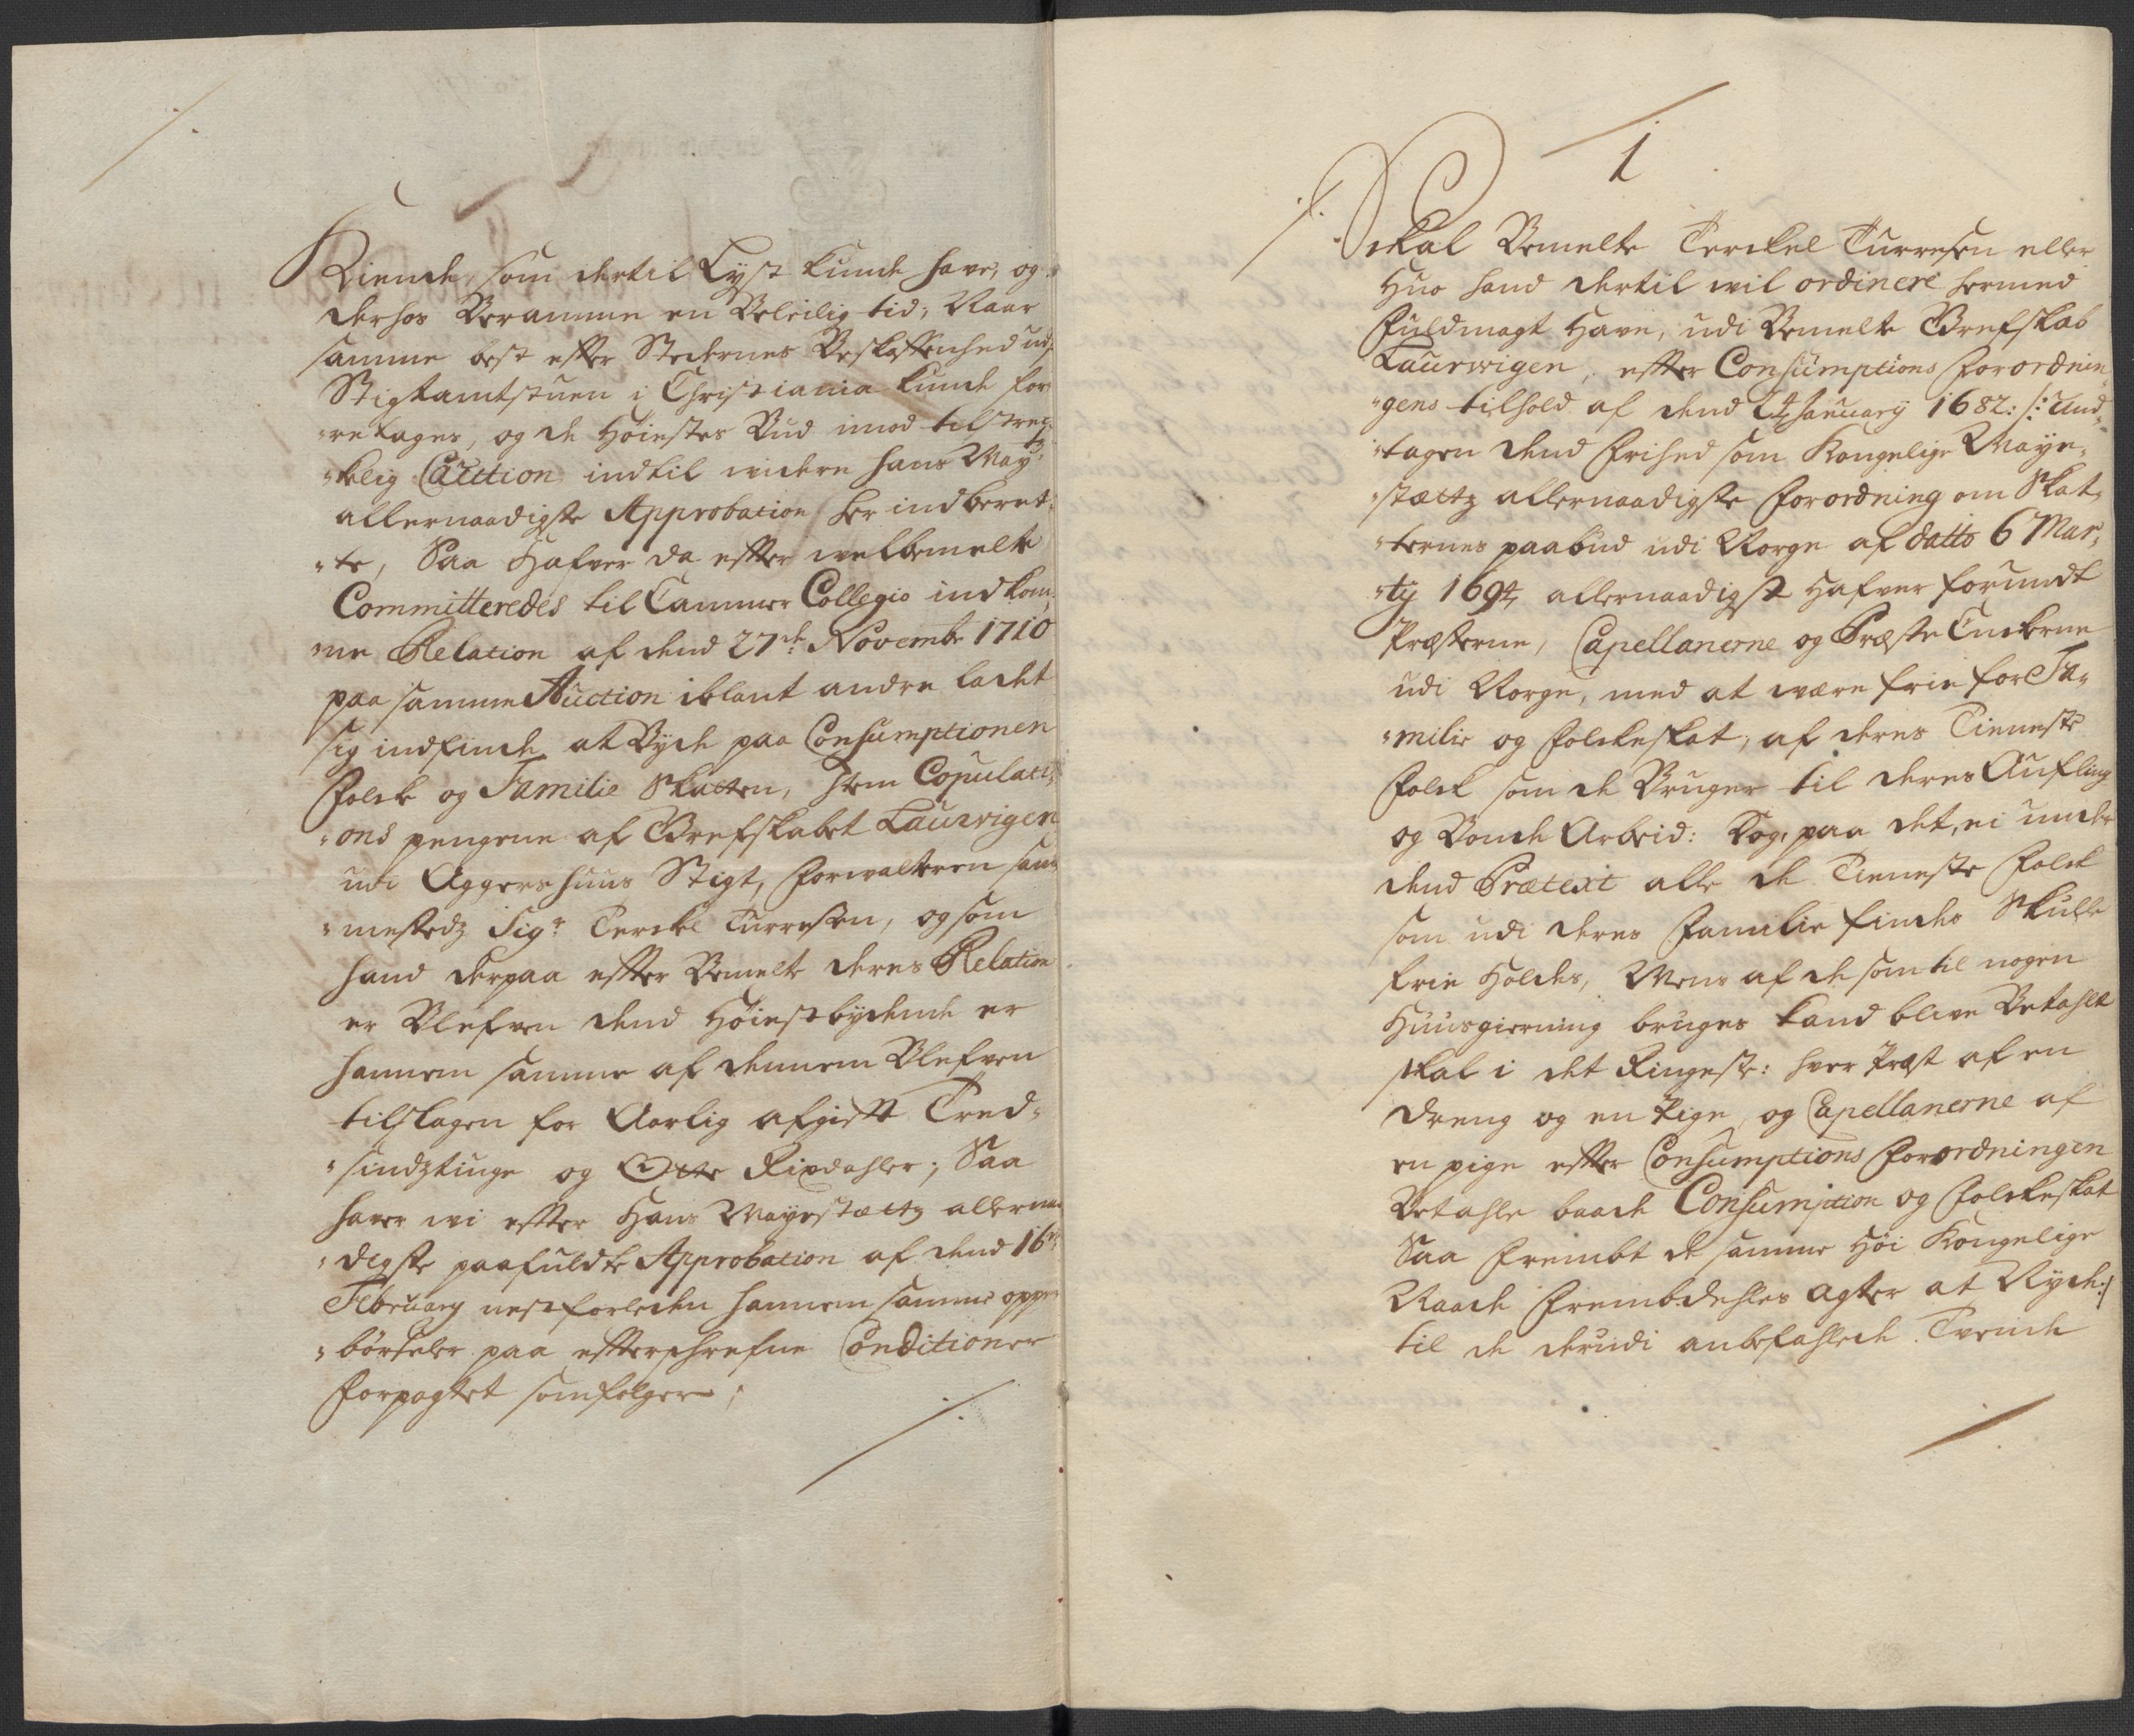 Kiende, som dertil Lyst kunde have, og
derhos Beramme en Beleilig tid, Naar
samme best effter Stedernes Beskaffenhed udj
Stigtamtstuen i Christiania kunde for
"retages, og de Høiestes Bud imod tilstrec
"kelig Caution indtil widere hans May:
allernaadigste Approbation her indberet,
"te, Saa Hafver da effter welbemelte
Committeredes til Cammer Collegio indkom,
"ne Relation af dend 27de Novembr 1710
paa samme Auction iblant andre ladet
sig indfinde at Byde paa Consumptionen
Folck og Familie Skatten, Item Copulati,
"ons pengene af Grefskabet Laurvigen
udi Aggershuus Stigt, Forvalteren sam
"mestedz Sigr Terckel Turresen, og som
hand derpaa effter Bemelte deres Relation
er Blefven dend Høiestbydende er
hannem samme af dennem Blefven
tilslagen for Aarlig afgifft Tred,
"sindztiuge og Otte Rixdahler; Saa
haver wi effter Hans Mayestættz allerna
"digste paafuldte Approbation af dend 16de
February nestforleden hannem samme oppe
"børseler paa effterschrefne Conditioner
Forpagtet som følger;
1
Skal Bemelte Terckel Turresen eller
Huo hand dertil wil ordinere hermed
Fuldmagt Have, udi Bemelte Grefskab
Laurwigen, effter Consumptions Forordnin
"gens tilhold af dend 24 January 1682: /: und,
"tagen dend Frihed som Kongelige Maye,
"stættz allernaadigste Forordning om Skat,
"ternes paabud udi Norge af datto 6 Mar,
"ty 1694 allernaadigst Hafver forundt
Præsterne, Capellanerne og Præste Enckerne
udi Norge, med at være frie for Fa,
"milie og Folckeskat, af deres Tieneste
Folck som de Bruger til deres Aufling
og Bonde Arbeid: Dog, paa det, ei under
dend Prætext alle de Tieneste Folck
som udi deres Familie findes Skulle
frie Holdes, Mens af de som til nogen
Huusgierning bruges kand blive Betahlt
skal i det Ringeste: hver Præst af en
Dreng og en Pige, og Capellanerne af
en pige effter Consumptions Forordningen
Betahle baade Consumption og Folckeskat
Saa Frembt de samme Høi Kongelige
Naade Frembdehles agter at Nyde:/
til de derudi anbefahlede Tvende